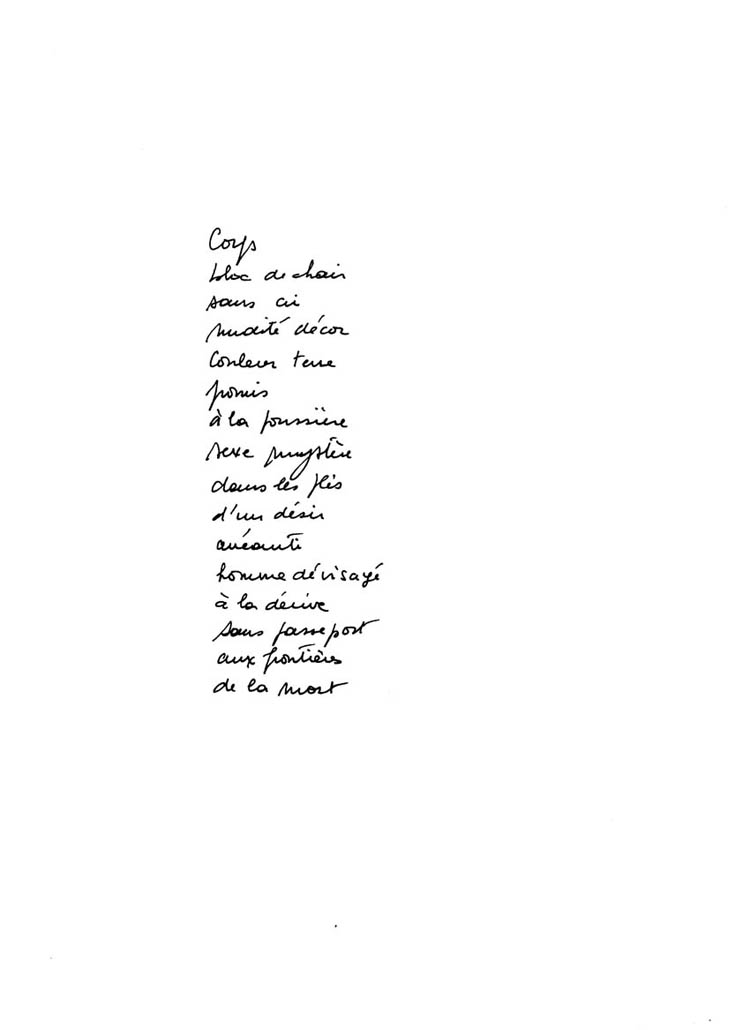 Corps
bloc de chair
sans cri
nudité décor
couleur terre
promis
à la poussière
sexe mystère
dans les plis
d'un désir
anéanti
homme dévisagé
à la dérive
sans passeport
aux frontières
de la mort